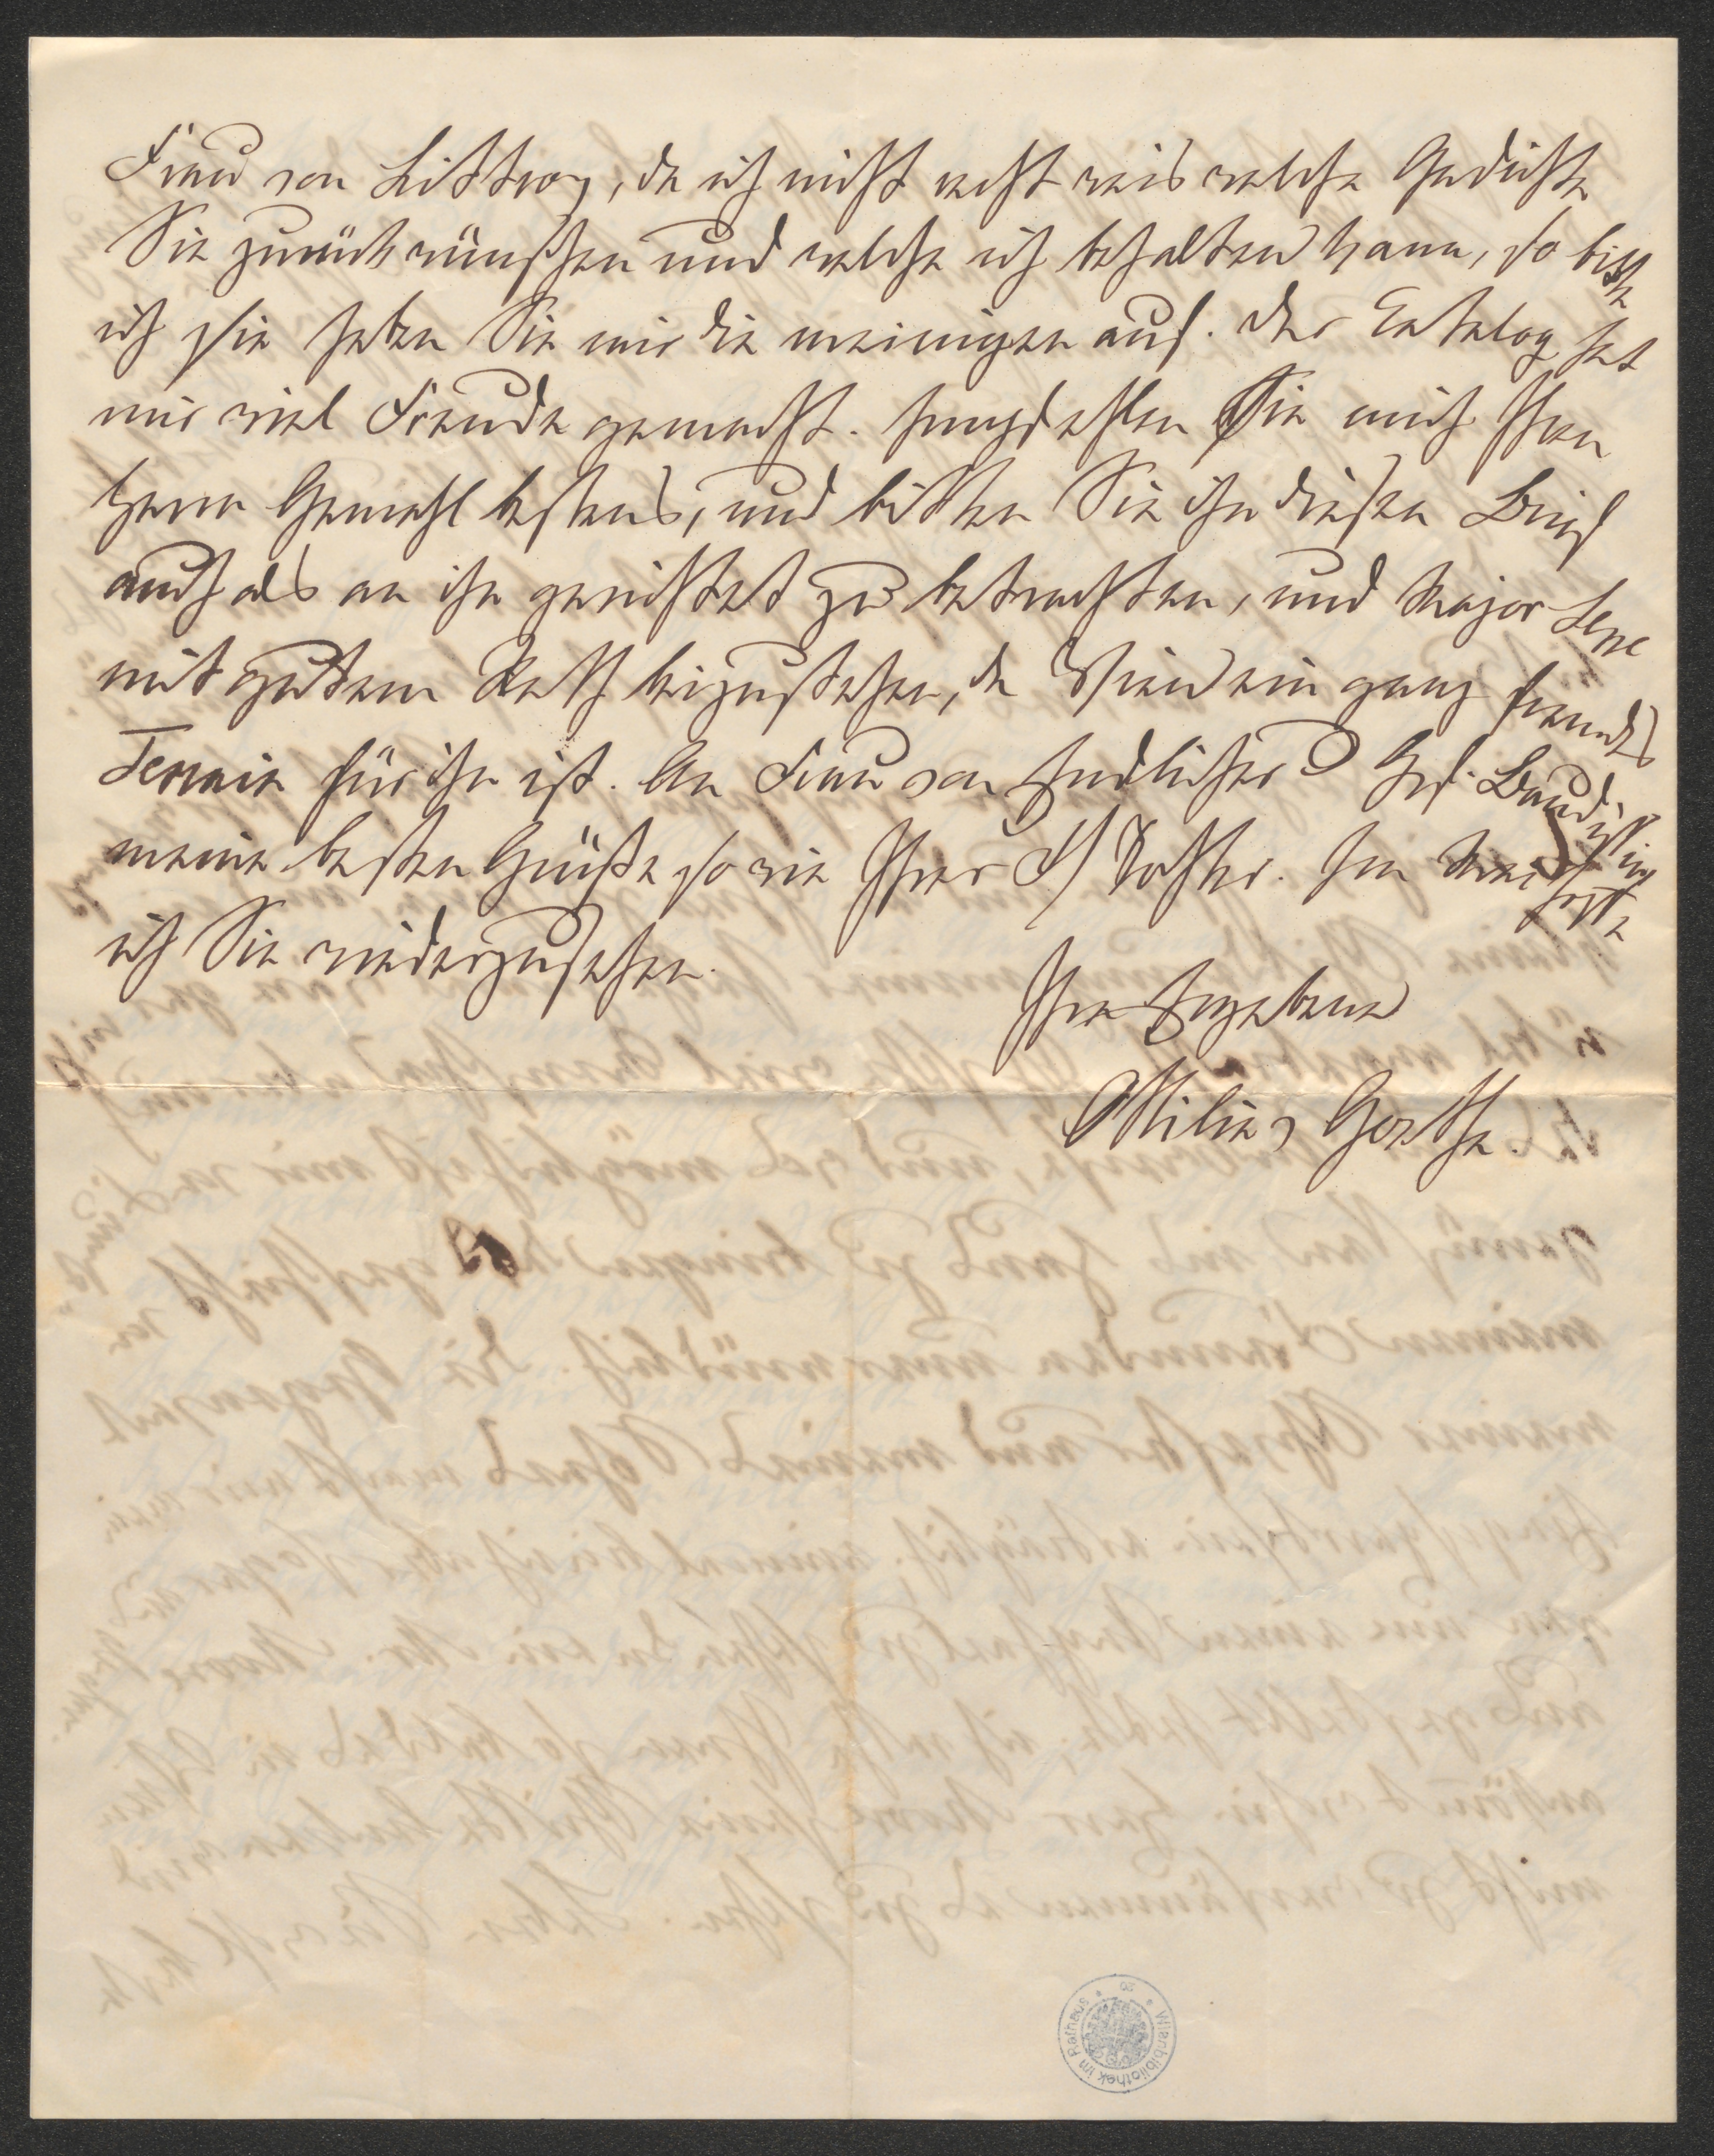 Frau von Littrow, da ich nicht recht weis welche Gedichte
Sie zurück wünschen und welche ich behalten kann, so bitte
ich sie heben Sie mir die meinigen auf. Der Catalog hat
mir viel Freude gemacht. Empfehlen Sie mich Ihren
Herrn Gemahl bestens, und bitten Sie ihn diesen Brief
auch als an ihn gerichtet zu betrachten, und Major
mit gutem Rath beizustehen, da Wien ein ganz fremdes
Terrain für ihn ist. An Frau von Endlicher Baudissin
meine besten Grüße so wie Ihrer Tochter. Im Mai hoffe
ich Sie wiederzusehen.
Ihre Ergebene
Ottilie v Goethe.
Wienbibliothek im Rathaus